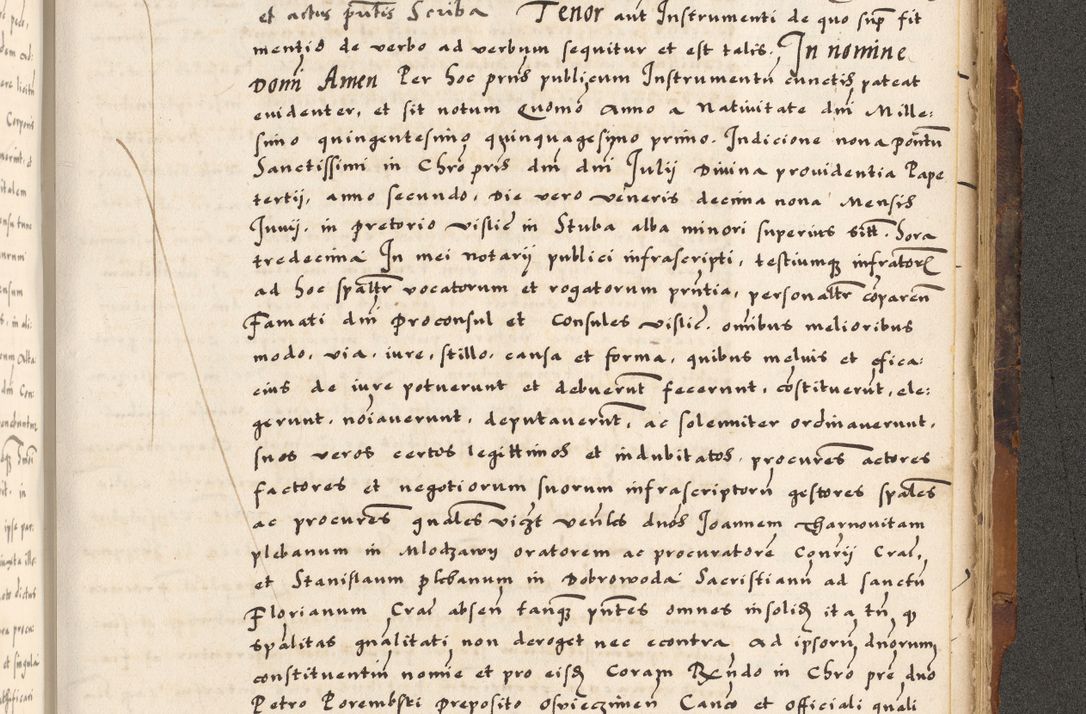 et actus pñtis Scriba Tenor aut Instrumenti de quo sup fit
mentio de verbo ad verbum sequitur et est talis. In nomine
Domi Amen Per hoc pñs publicum Instrumentũ cunctis pateat
evidenter, et sit notum Quomo Anno a Nativitate dni Mille:
simo quingentesimo quinquagesimo primo. Indicione nona pontũ
Sanctissimi in Chro pris dni dni Julij Divina providentia Pape
tertij, anno secundo, Die vero veneris decima nona Mensis
Junij. in pretorio vislic in Stuba alba minori superius sitt. Hora
tredecima In mei notarij publici infrascripti, testiumq infrator
ad hoc spaltr vocatorum et rogatorum pntia, personaltr comparen
Famati dni Proconsul et Consules vislic. omibus melioribus
modo, via, iure, stillo, causa et forma, quibus melius et efica:
cius de iure potuerunt et debuerut fecerunt, costituerut, ele:
gerunt, noiaverunt, deputaverut, ac solemniter ordinaverunt,
suos veros certos legittimos et indubitatos procures actores
factores et negotiorum suorum infrascriptorũ gestores spales
ac procures quales vidzt venles duos Joannem Tharnovitam
plebanum in Mlodzawy oratorem ac procuratore Conrij Crac,
et Stanislaum plebanum in Dobrowoda Sacristianũ ad sanctũ
Florianum Crac absen tanq pntes omnes insolid ita tn q
spalitas qualitati non deroget nec econtra Ad ipsorũ dnorum
constituentiũ nomie et pro eisd Coram Rendo in Chro pre dno
Petro Porembski Preposito Osvieczimen Canco et officiali quali